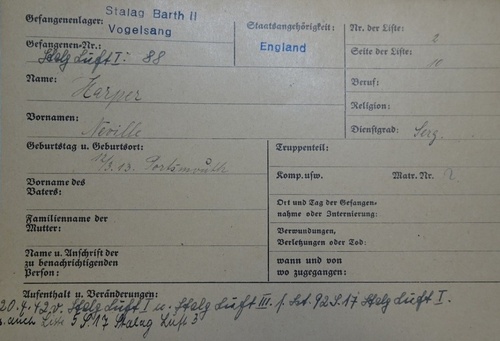 Gefangenenlager: Stalag Barth II
Vogelsang
Staatsangehörigkeit:
England
Nr. der Liste: 2
Seite der Liste: 10
Gefangenen-Nr.: Stalg Luft I: 88
Name: Harper
Beruf:
Religion:
Vornamen: Neville
Dienstgrad: Serg.
Geburtstag u. Geburtsort:
3.03. Portsmouth
Truppenteil:
Komp. usw. Matr. Nr.
Vorname des
Vaters:
Ort und Tag der Gefangen-
nahme oder Internierung:
Familienname der
Mutter:
Verwundungen,
Verletzungen oder Tod:
Name u. Anschrift der
zu benachrichtigenden
Person:
wann und von
wo zugegangen:
Aufenthalt u. Veränderungen:
20.4.42 v. Stalg Luft I n. Stalg Luft III. f. Lst. 92 S. 17 Stalg Luft I.
s. auch Liste 5 S. 17 Stalag Luft 3